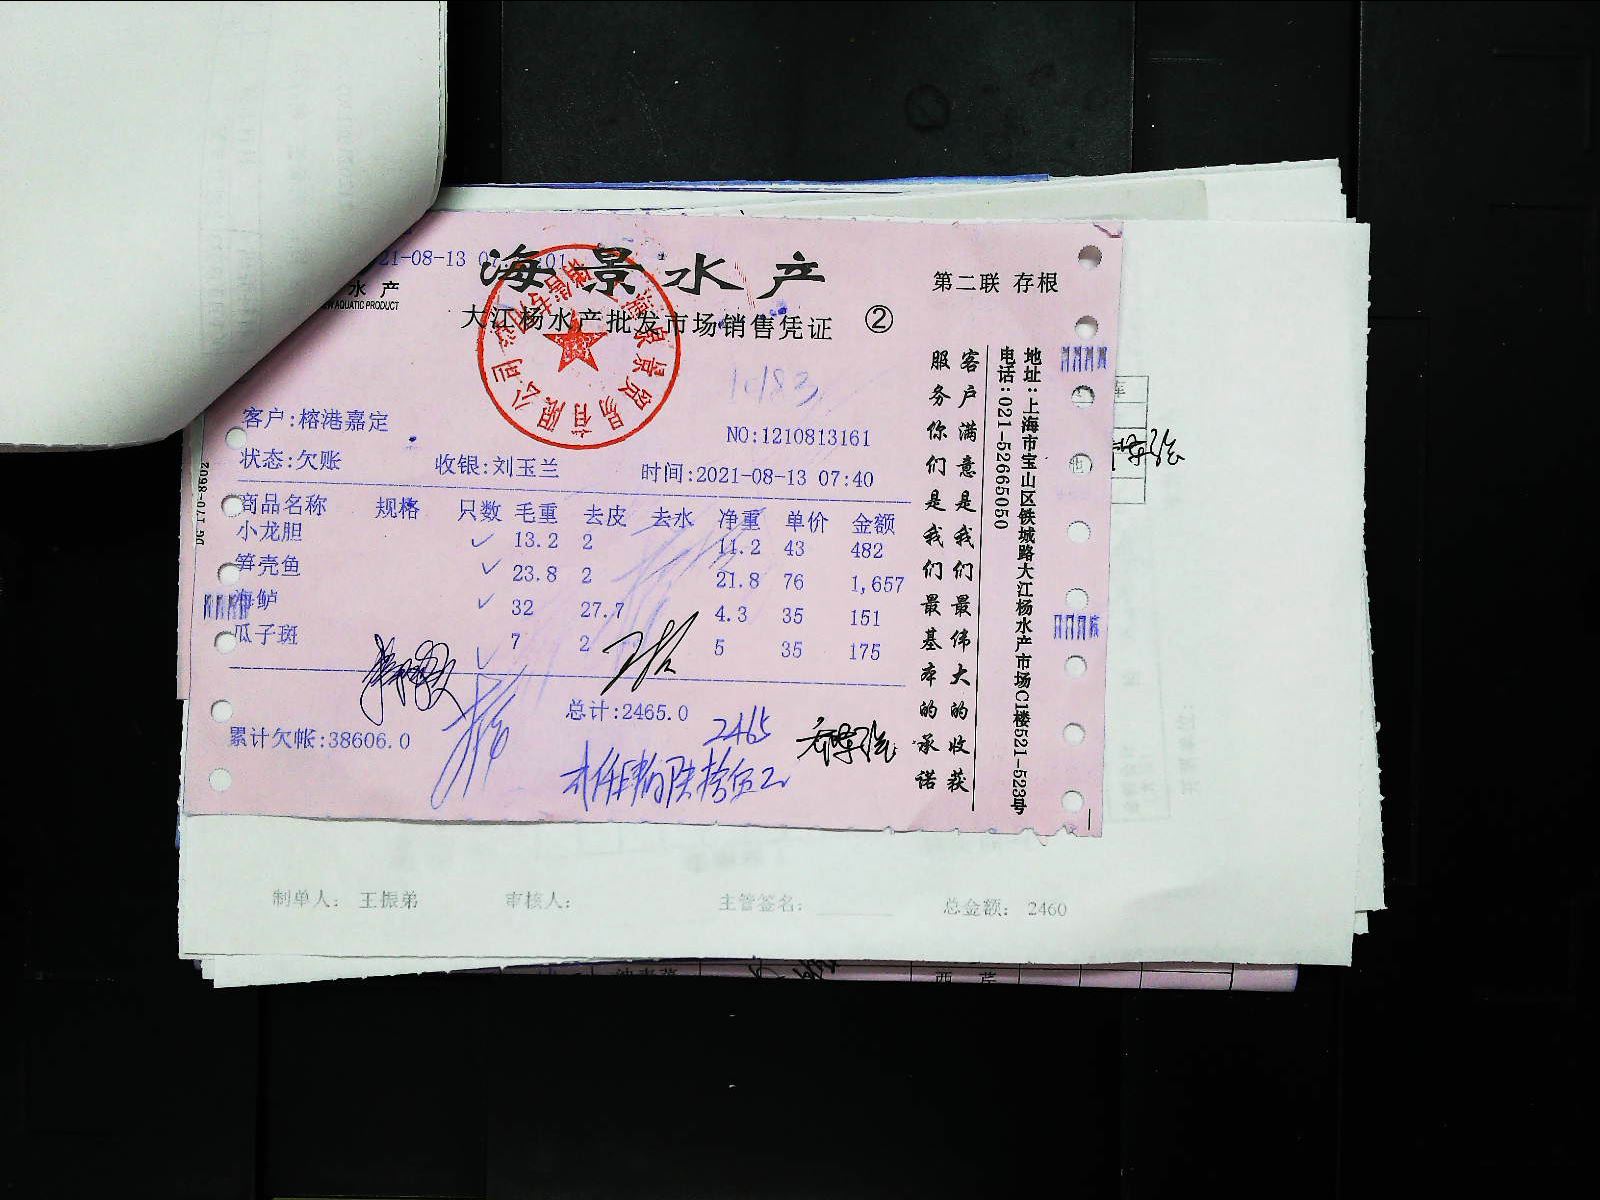 21-08-13 07
海景水产
水产
AQUATIC PRODUCT
大江杨水产批发市场销售凭证 ②
第二联 存根
10183
客户:榕港嘉定
NO:1210813161
状态:欠账 收银:刘玉兰 时间:2021-08-13 07:40
商品名称 规格 只数 毛重 去皮 去水 净重 单价 金额
小龙胆 13.2 2 11.2 43 482
笋壳鱼 23.8 2 21.8 76 1,657
海鲈 32 27.7 4.3 35 151
瓜子斑 7 2 5 35 175
总计:2465.0
累计欠帐:38606.0
2465
客户满意是我们最伟大的收获
服务你们是我们最基本的承诺
地址:上海市宝山区铁城路大江杨水产市场C1楼521-523号
电话:021-52665050
制单人: 王振弟 审核人: 主管签名: 总金额: 2460
西芹